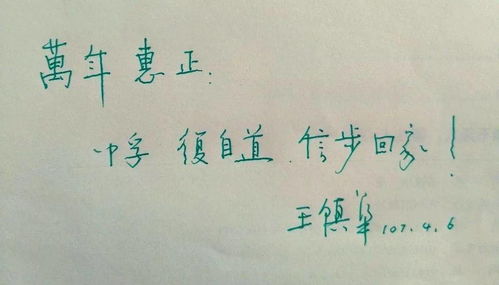 萬年惠正:
中孚 復自道 信步回家!
王鎮華 107.4.6